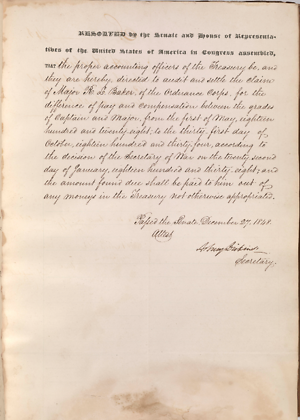 RESOLVED by the Senate and House of Representa-
tives of the United States of America in Congress assembled,
THAT the proper accounting officers of the Treasury be, and
they are hereby, directed to audit and settle the claim
of Major R. L. Baker, of the Ordnance Corps, for the
difference of pay and compensation between the grades
of Captain and Major, from the first of May, eighteen
hundred and twenty eight, to the thirty first day of
October, eighteen hundred and thirty four, according to
the decision of the Secretary of War on the twenty second
day of January, eighteen hundred and thirty eight; and
the amount found due shall be paid to him out of
any moneys in the Treasury not otherwise appropriated.
Passed the Senate December 27. 1848.
Attest
Asbury Dickins
Secretary.